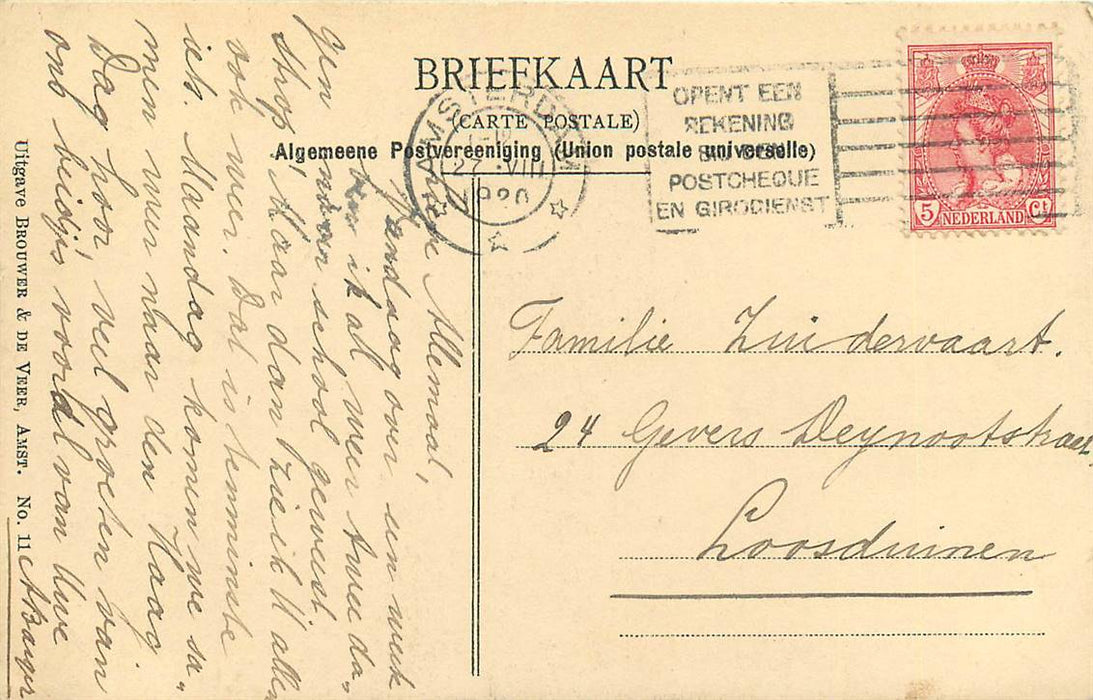 BRIEFKAART
(CARTE POSTALE)
Algemeene Postvereeniging (Union postale universelle)
AMSTERDAM
27 VIII
1920
OPENT EEN
REKENING
BIJ DEN
POSTCHEQUE
EN GIRODIENST
5 NEDERLAND Ct
Familie Zuidervaart.
24 Gevers Deynootstraat
Loosduinen
Lieve Allemaal,
Vandaag over een week
ben ik al weer twee da„
gen naar school geweest
Strop! Maar dan zie ik U allen
ook weer. Dat is tenminste
iets. Maandag komen we sa„
men weer naar den Haag.
Dag hoor, veel groeten van
ons beidjes vooral van Uwe
Uitgave BROUWER & DE VEER, AMST. No. 11